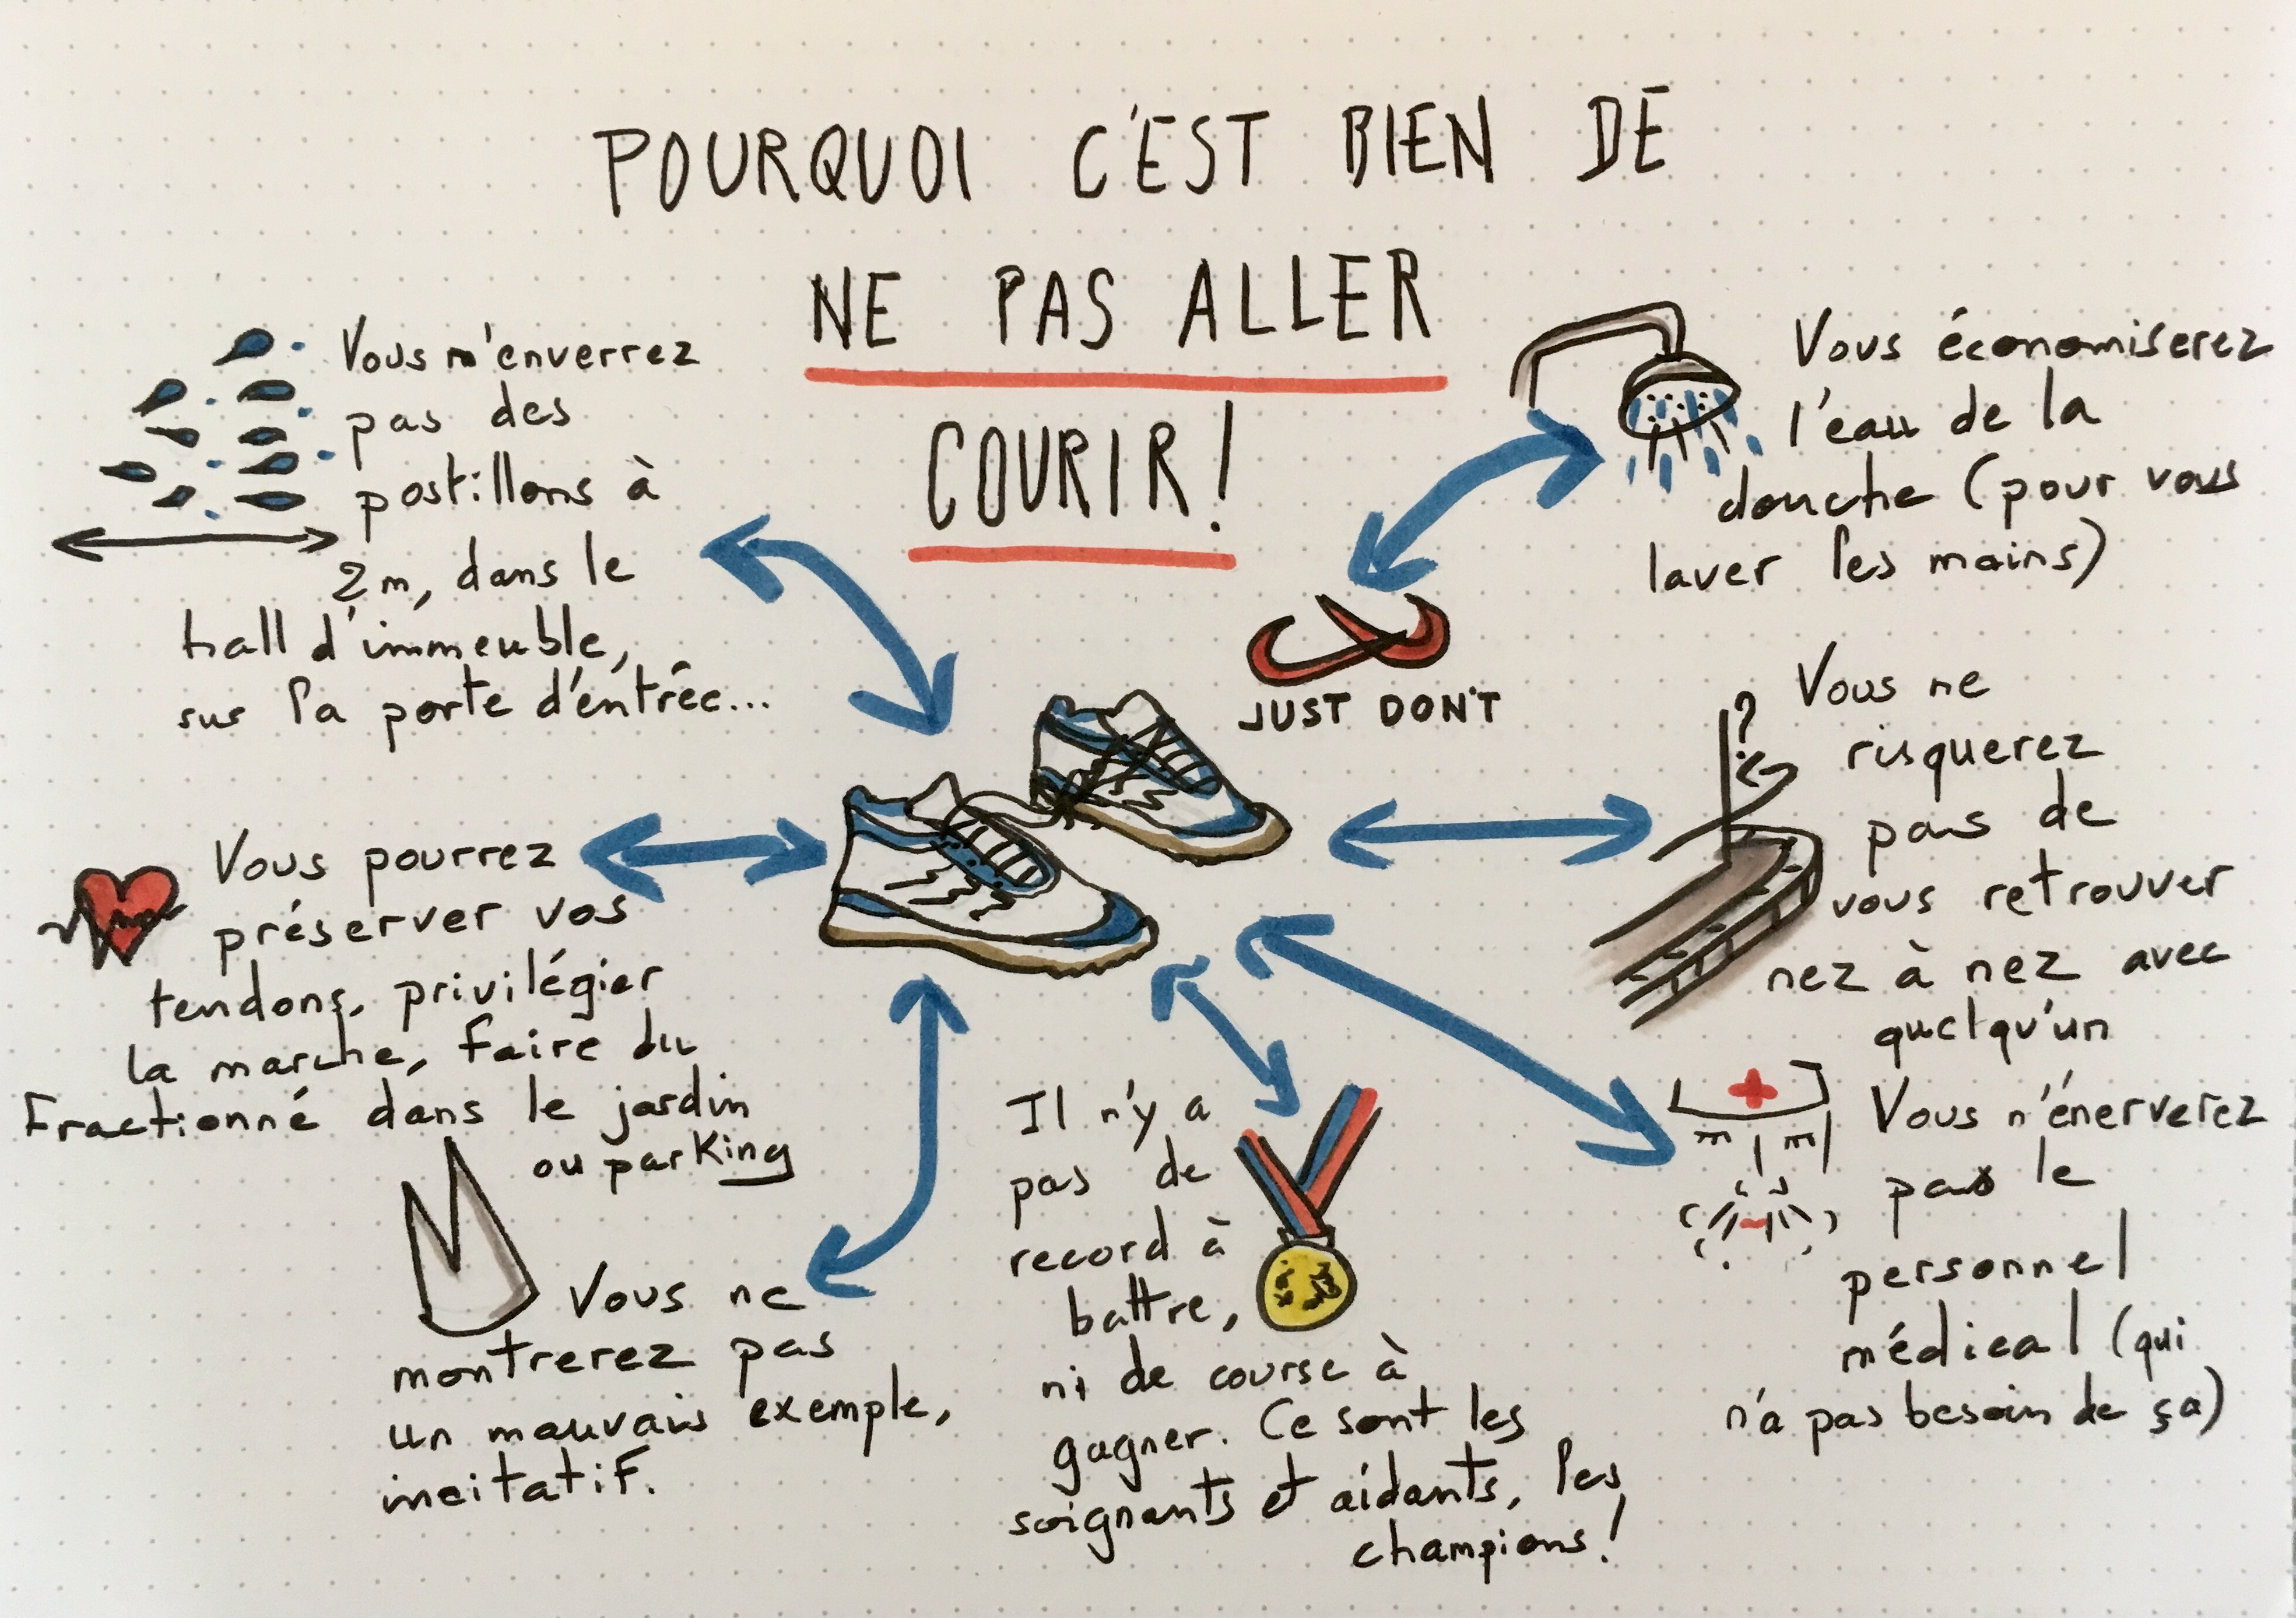 POURQUOI C'EST BIEN DE
NE PAS ALLER
COURIR!
Vous n'enverrez
pas des
postillons à
2m, dans le
hall d'immeuble,
sur la porte d'entrée...
Vous économiserez
l'eau de la
douche (pour vous
laver les mains)
JUST DON'T
?
Vous ne
risquerez
pas de
vous retrouver
nez à nez avec
quelqu'un
Vous pourrez
préserver vos
tendons, privilégier
la marche, faire du
Fractionné dans le jardin
ou parking
Vous ne
montrerez pas
un mauvais exemple,
incitatif.
Il n'y a
pas de
record à
battre,
ni de course à
gagner. Ce sont les
soignants et aidants, les
champions!
Vous n'énerverez
pas le
personnel
médical (qui
n'a pas besoin de ça)